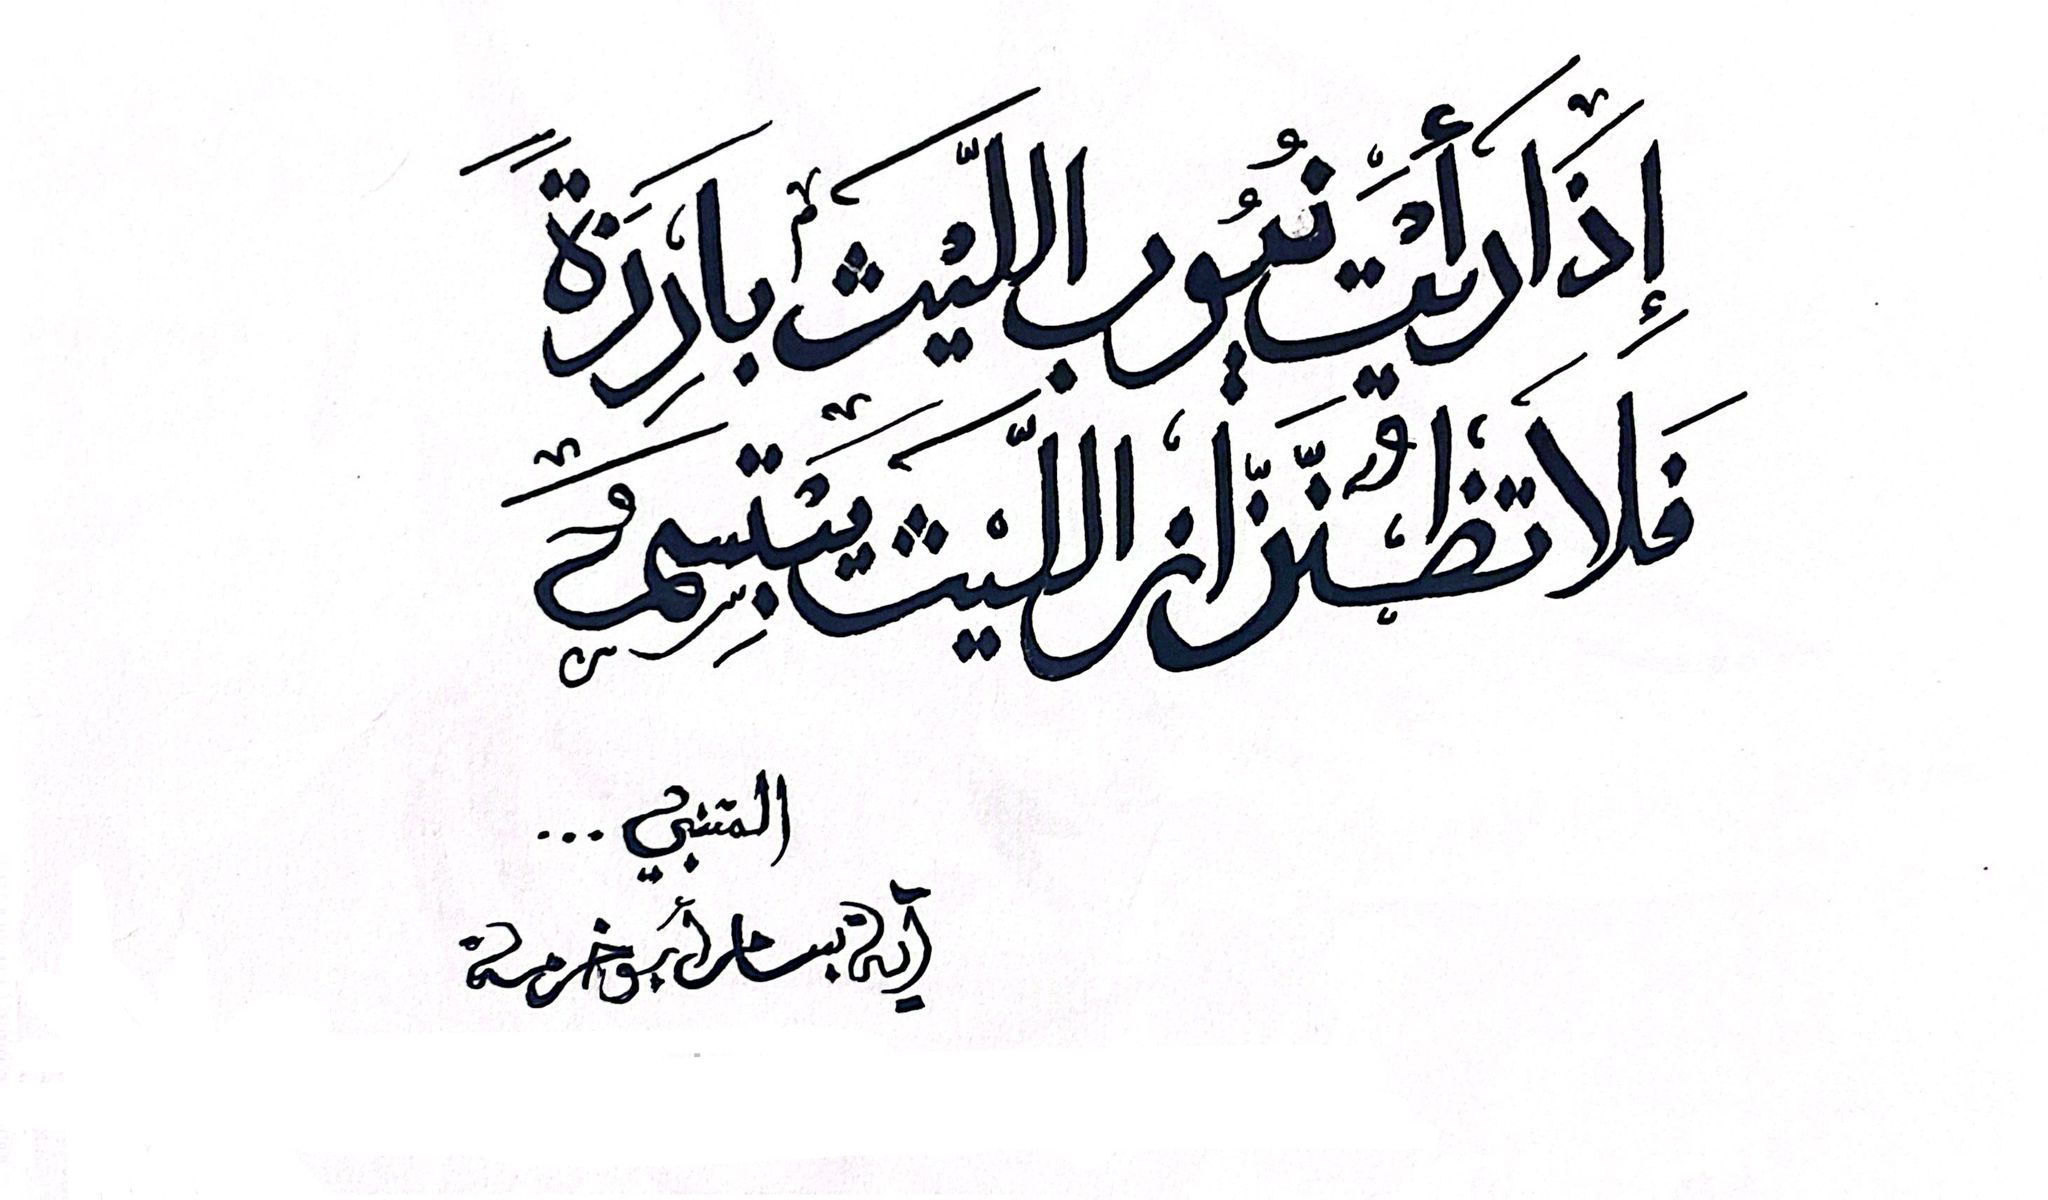 إِذَا رَأَيْتَ نُيُوبَ اللَّيْثِ بَارِزَةً
فَلَا تَظُنَّنَّ أَنَّ اللَّيْثَ يَبْتَسِمُ
المتنبي ...
آية بسام أبو خرمة